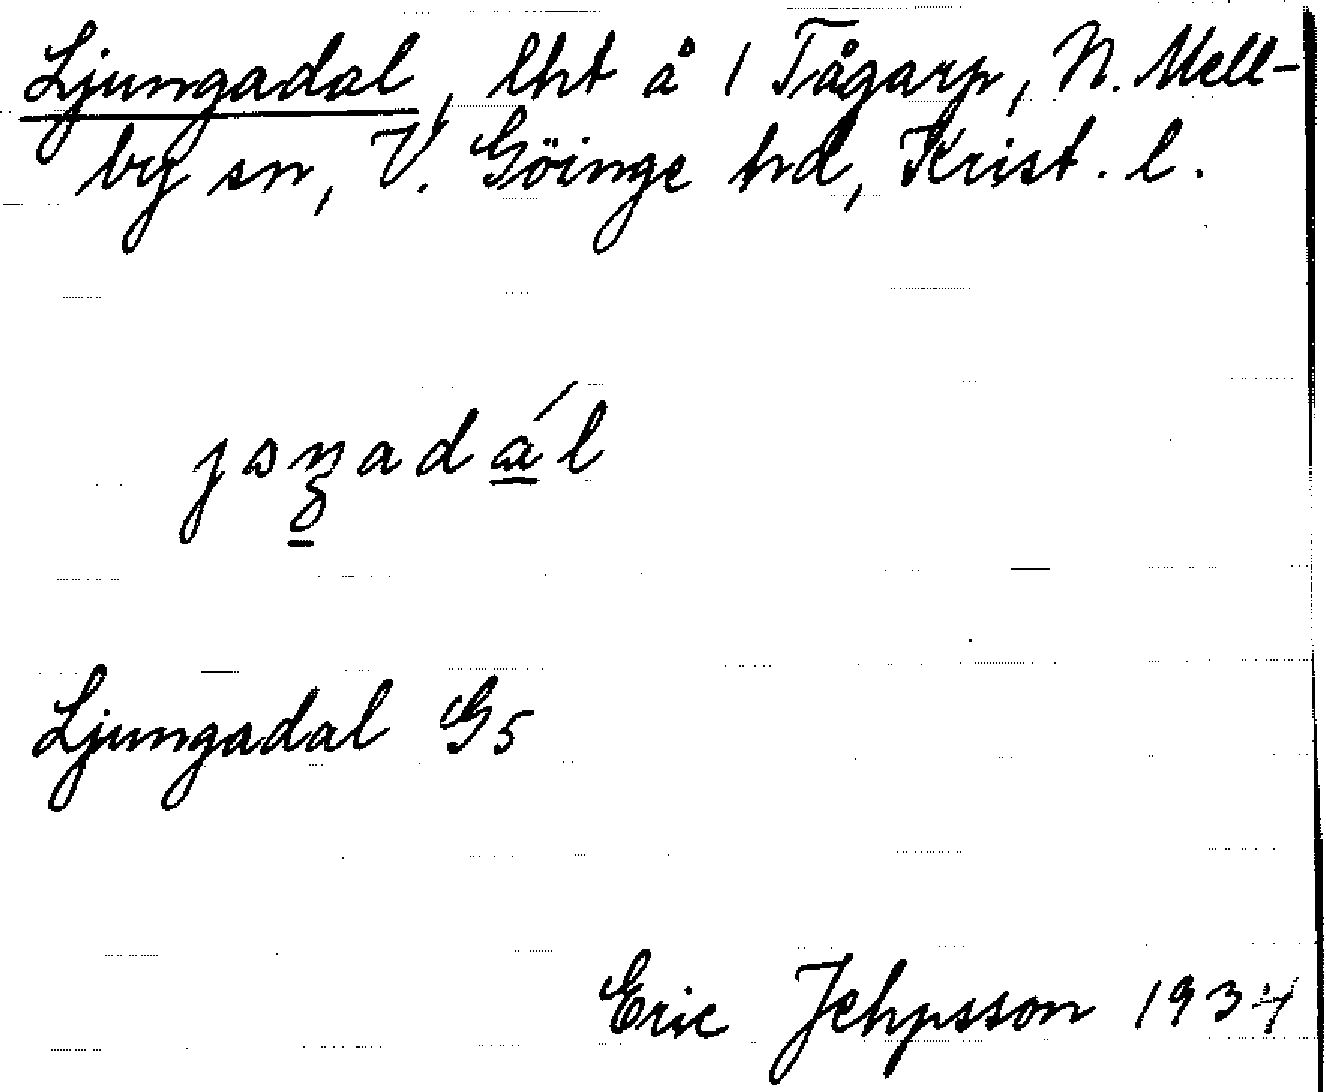 Ljungadal, lht å 1 Tågarp, N. Mell-
by sn, V. Göinge hd, Krist. l.
Ljungadal G5
Eric Jehpsson 1934